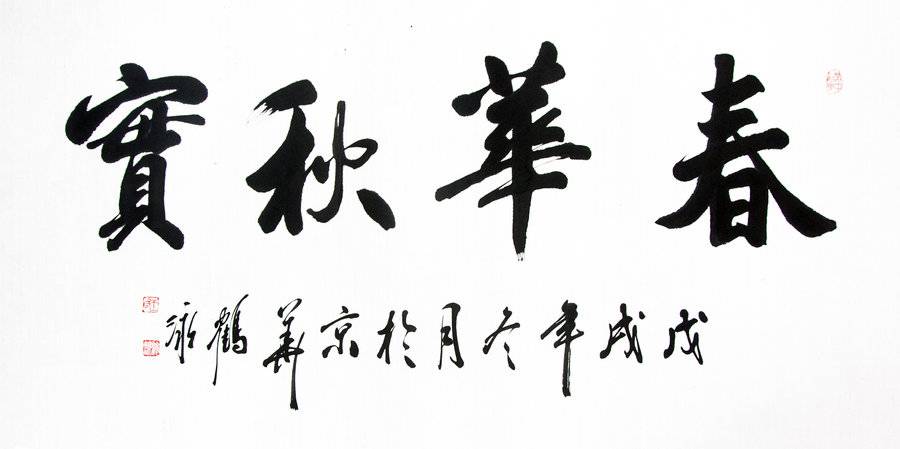 春華秋實
戊戌年冬月於京華鶴泳